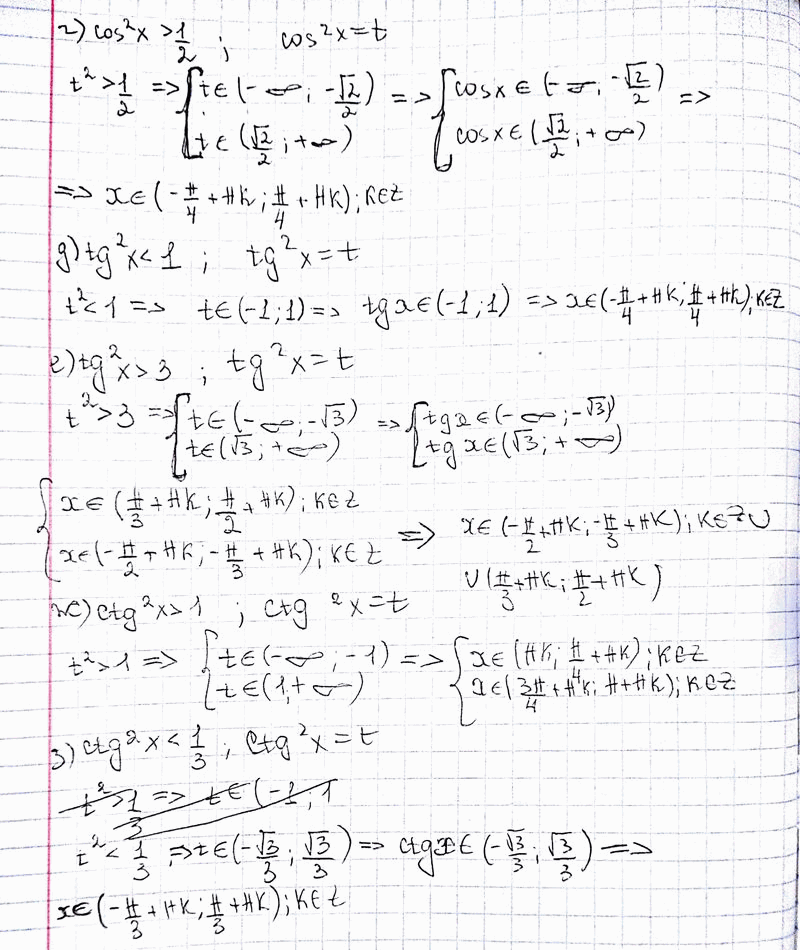 г) cos²x > 1/2 ; cos²x = t
t² > 1/2 => [ t ∈ (-∞; -√2/2) => [ cosx ∈ (-∞; -√2/2) =>
t ∈ (√2/2; +∞) cosx ∈ (√2/2; +∞)
=> x ∈ (-π/4 + πk; π/4 + πk); k∈Z
д) tg²x < 1 ; tg²x = t
t² < 1 => t ∈ (-1; 1) => tgx ∈ (-1; 1) => x ∈ (-π/4 + πk; π/4 + πk); k∈Z
е) tg²x > 3 ; tg²x = t
t² > 3 => [ t ∈ (-∞; -√3) => [ tgx ∈ (-∞; -√3)
t ∈ (√3; +∞) tgx ∈ (√3; +∞)
{ x ∈ (π/3 + πk; π/2 + πk); k∈Z
x ∈ (-π/2 + πk; -π/3 + πk); k∈Z => x ∈ (-π/2 + πk; -π/3 + πk); k∈Z ∪
∪ (π/3 + πk; π/2 + πk)
ж) ctg²x > 1 ; ctg²x = t
t² > 1 => { t ∈ (-∞; -1) => { x ∈ (πk; π/4 + πk); k∈Z
t ∈ (1, +∞) x ∈ (3π/4 + πk; π + πk); k∈Z
з) ctg²x < 1/3 ; ctg²x = t
t² > 1/3 => t ∈ (-1; 1
t² < 1/3 => t ∈ (-√3/3; √3/3) => ctgx ∈ (-√3/3; √3/3) =>
x ∈ (-π/3 + πk; π/3 + πk); k∈Z